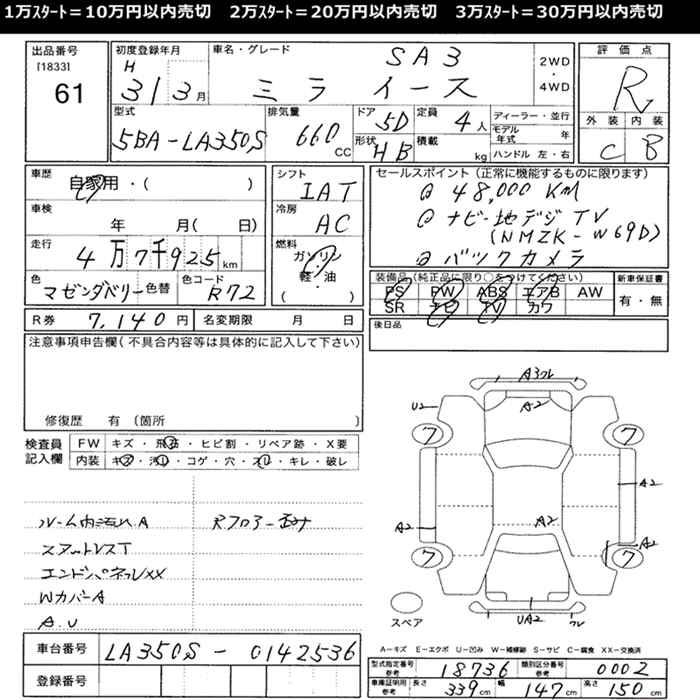 1万ｽﾀｰﾄ＝10万円以内売切　2万ｽﾀｰﾄ＝20万円以内売切　3万ｽﾀｰﾄ＝30万円以内売切
出品番号
[1833]
61
初度登録年月
H
31 3月
車名・グレード
SA3
ミラ イース
2WD
・
4WD
評価点
R
外装 内装
C B
型式
5BA-LA350S
排気量
660 CC
ドア
5D
形状
HB
定員
4人
積載
kg
ディーラー・並行
モデル年式 年
ハンドル 左・右
車歴
自家用・( )
車検
年 月( 日)
走行
4万7千925km
色
マゼンダベリー
色替
色コード
R72
シフト
IAT
冷房
AC
燃料
ガソリン
軽・油
( )
セールスポイント (正常に機能するものに限ります)
48,000KM
ナビ・地デジTV
(NMZK-W69D)
バックカメラ
装備品(純正品に限り○をつけてください)
PS PW ABS エアB AW
SR ナビ TV カワ
新車保証書
有・無
R券 7,140円 名変期限 月 日
後日品
注意事項申告欄(不具合内容等は具体的に記入して下さい)
修復歴 有 (箇所 )
検査員
記入欄
FW キズ・飛石・ヒビ割・リペア跡・X要
内装 キズ・汚レ・コゲ・穴・スレ・キレ・破レ
ルーム内汚れA
Rフロアー歪ミ
エンドパネルXX
WカバーA
A.U
A3 フレ
A2
U2
7
7
A2
A2
A2
A2
7
7
UA2
フレ
スペア
A-キズ E-エクボ U-凹ミ W-補修跡 S-サビ C-腐食 XX-交換済
車台番号
LA350S-0142536
登録番号
型式指定番号
参考
18736
類別区分番号
参考
0002
車庫証明用
参考
長さ 339cm 幅 147cm 高さ 150cm